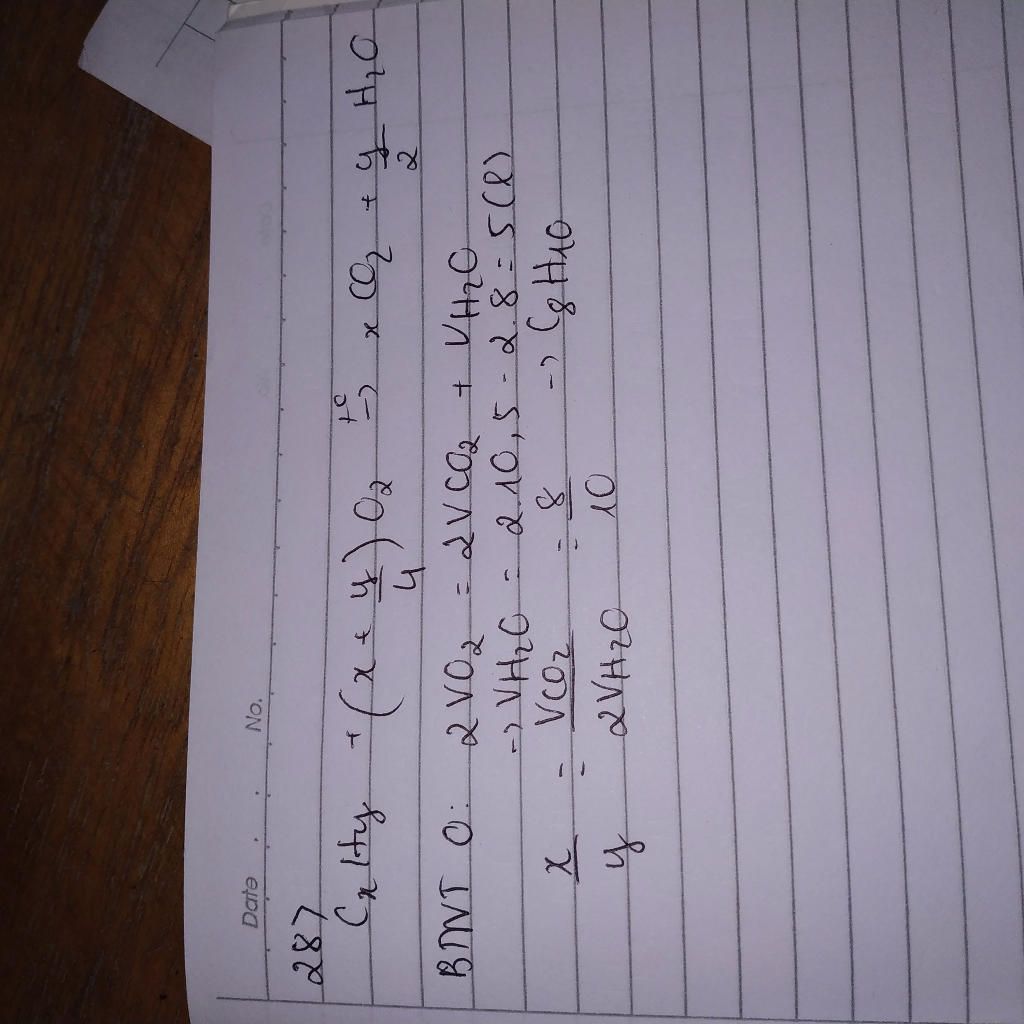 Date . . No.
287
CxHy + (x + y/4) O2 t° → x CO2 + y/2 H2O
BTNT O: 2VO2 = 2VCO2 + VH2O
→ VH2O = 2.10,5 - 2.8 = 5(l)
x/y = VCO2/2VH2O = 8/10 → C8H10